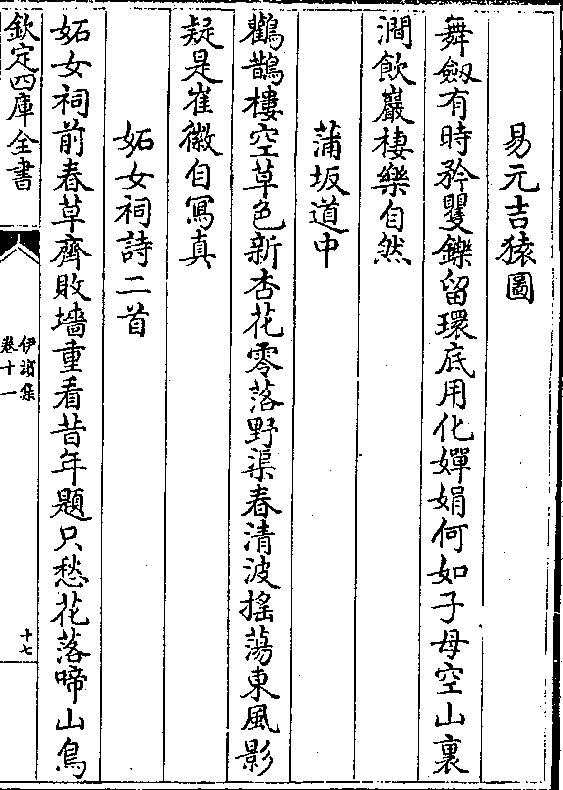 易元吉猿圖
舞劔有時矜矍鑠留環底用化嬋娟何如子母空山裏
澗飲巖棲樂自然
蒲坂道中
鸛鵲樓空草色新杏花零落野渠春清波搖蕩東風影
疑是崔徽自寫真
妬女祠詩二首
妬女祠前春草齊敗墻重看昔年題只愁花落啼山鳥
欽定四庫全書
伊濱集
卷十一
十七